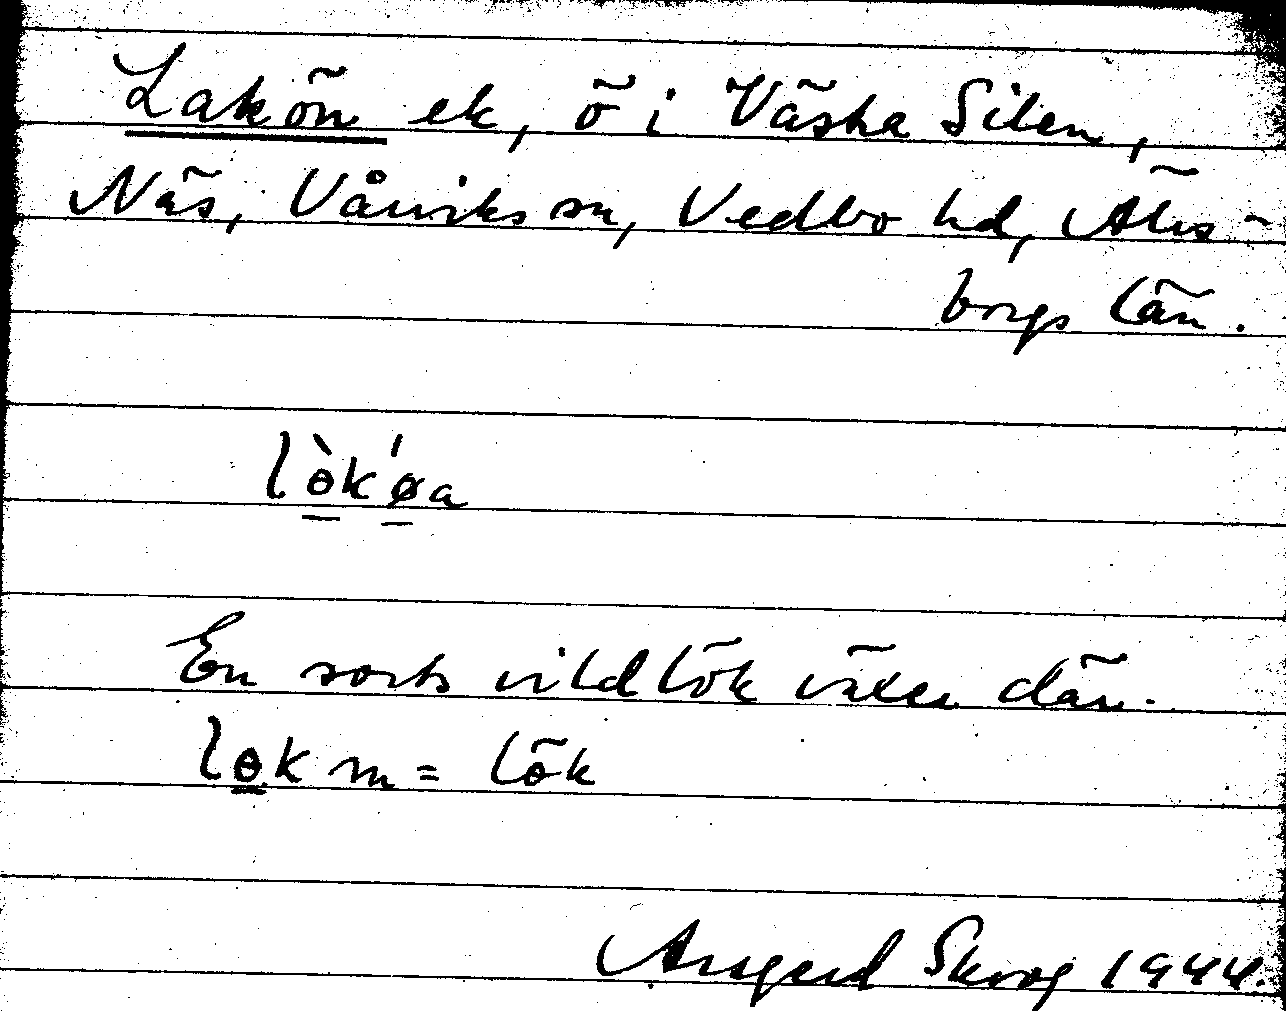 Lakön ek, ö i Västra Silen,
Näs, Vårviks sn, Vedbo hd, Älvs-
borgs län.
lὸ̱k'ø̱a
En sorts vildlök växer där.
lɵ̱k m = lök
Arngerd Skoog 1944.